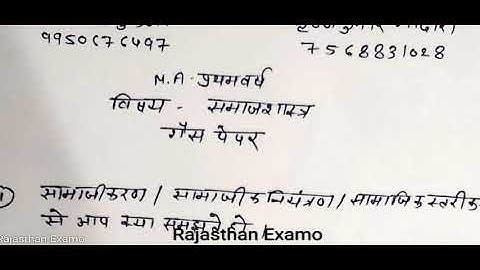 9950676497
7568831028
M.A. प्रथमवर्ष
विषय - समाजशास्त्र
गैस पेपर
सामाजीकरण / सामाजीक नियंत्रण / सामाजिक स्तरीक
से आप क्या समझते हो
Rajasthan Examo
Rajasthan Examo